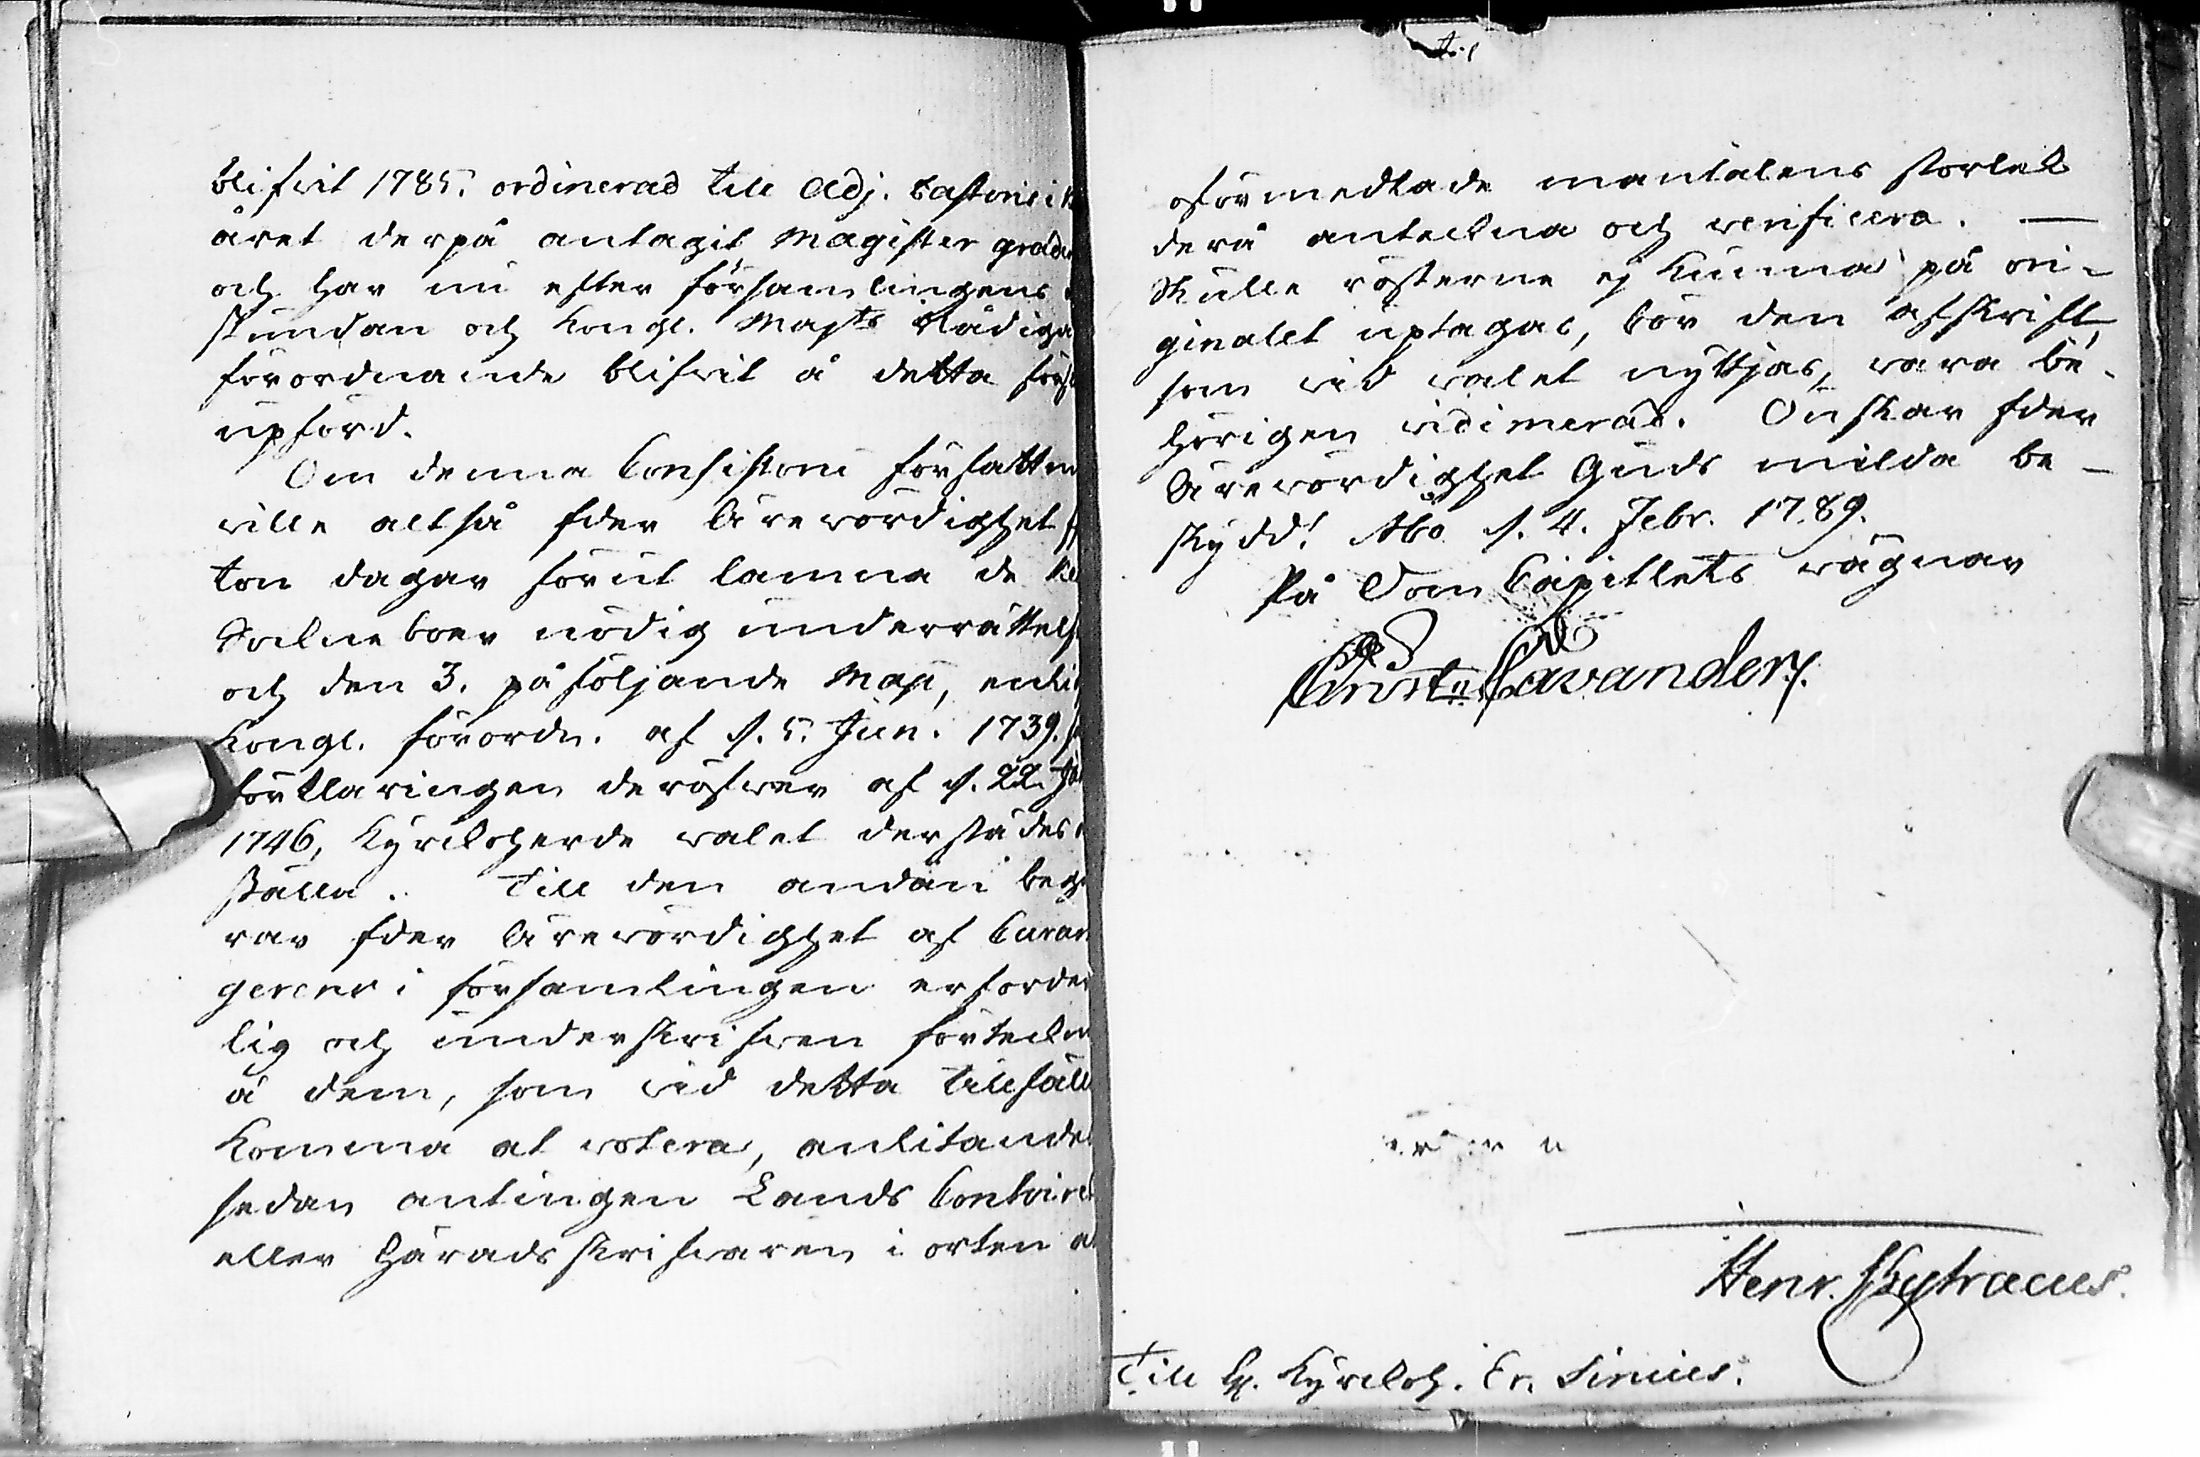 blifvit 1785. ordinerad till Adj. Pastoris i
året derpå antagit Magister grade
och har nu efter församlingens
åstundan och Kongl. Majts Nådiga
förordnande blifvit å detta förs
upförd.
Om denna Consistorii författn
ville altså Eder Ärevördighet
ton dagar förut lämna de
Sockneboer nödig underrättels
och den 3. påföljande Maji, enli
Kongl. förordn. af d. 5. Jun. 1739.
förklaringen deröfver af d. 22. Ja
1746, Kyrckoherde valet derstädes
ställa. Till den ändan beg
rar Eder Ärevördighet af
gerens i församlingen erforder
lig och underskrifven förteckn
å dem, som vid detta tillfäll
komma at votera, anlitande
sedan antingen Lands Contoiret
eller Häradsskrifvaren i orten a
til
oförmedlade mantalens storlek
derå anteckna och verificera. —
Skulle rösterne ej kunna på ori-
ginalet uptagas, bör den afskrift,
som vid valet nyttjas, vara be-
hörigen vidimerad. Önskar Eder
Ärevördighet Guds milda be-
skydd! Åbo d. 4. Febr. 1789.
På Dom Capitlets vägnar
Christ. Cavander.
Henr.
Till H. Kyrckoh. Er.